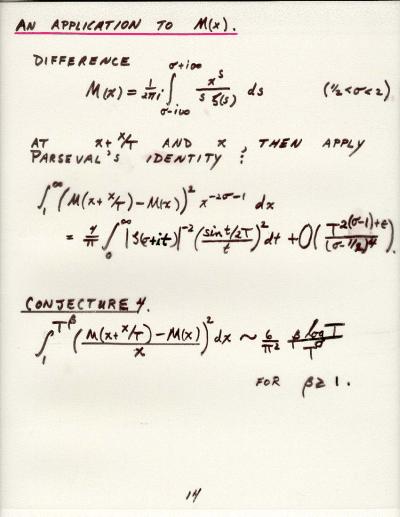 AN APPLICATION TO M(x).
DIFFERENCE
M(x) = 1/2πi ∫_{σ-i∞}^{σ+i∞} x^s / (s ζ(s)) ds (1/2<σ<2)
AT x+x/T AND x, THEN APPLY
PARSEVAL'S IDENTITY :
∫_1^∞ (M(x+x/T) - M(x))^2 x^{-2σ-1} dx
= 4/π ∫_0^∞ |ζ(σ+it)|^{-2} (sin t/2T / t)^2 dt + O(T^{2(σ-1)+ε} / (σ-1/2)^4).
CONJECTURE 4.
∫_1^{T^β} (M(x+x/T) - M(x) / x)^2 dx ~ 6/π² β log T / T
FOR β≥1.
14